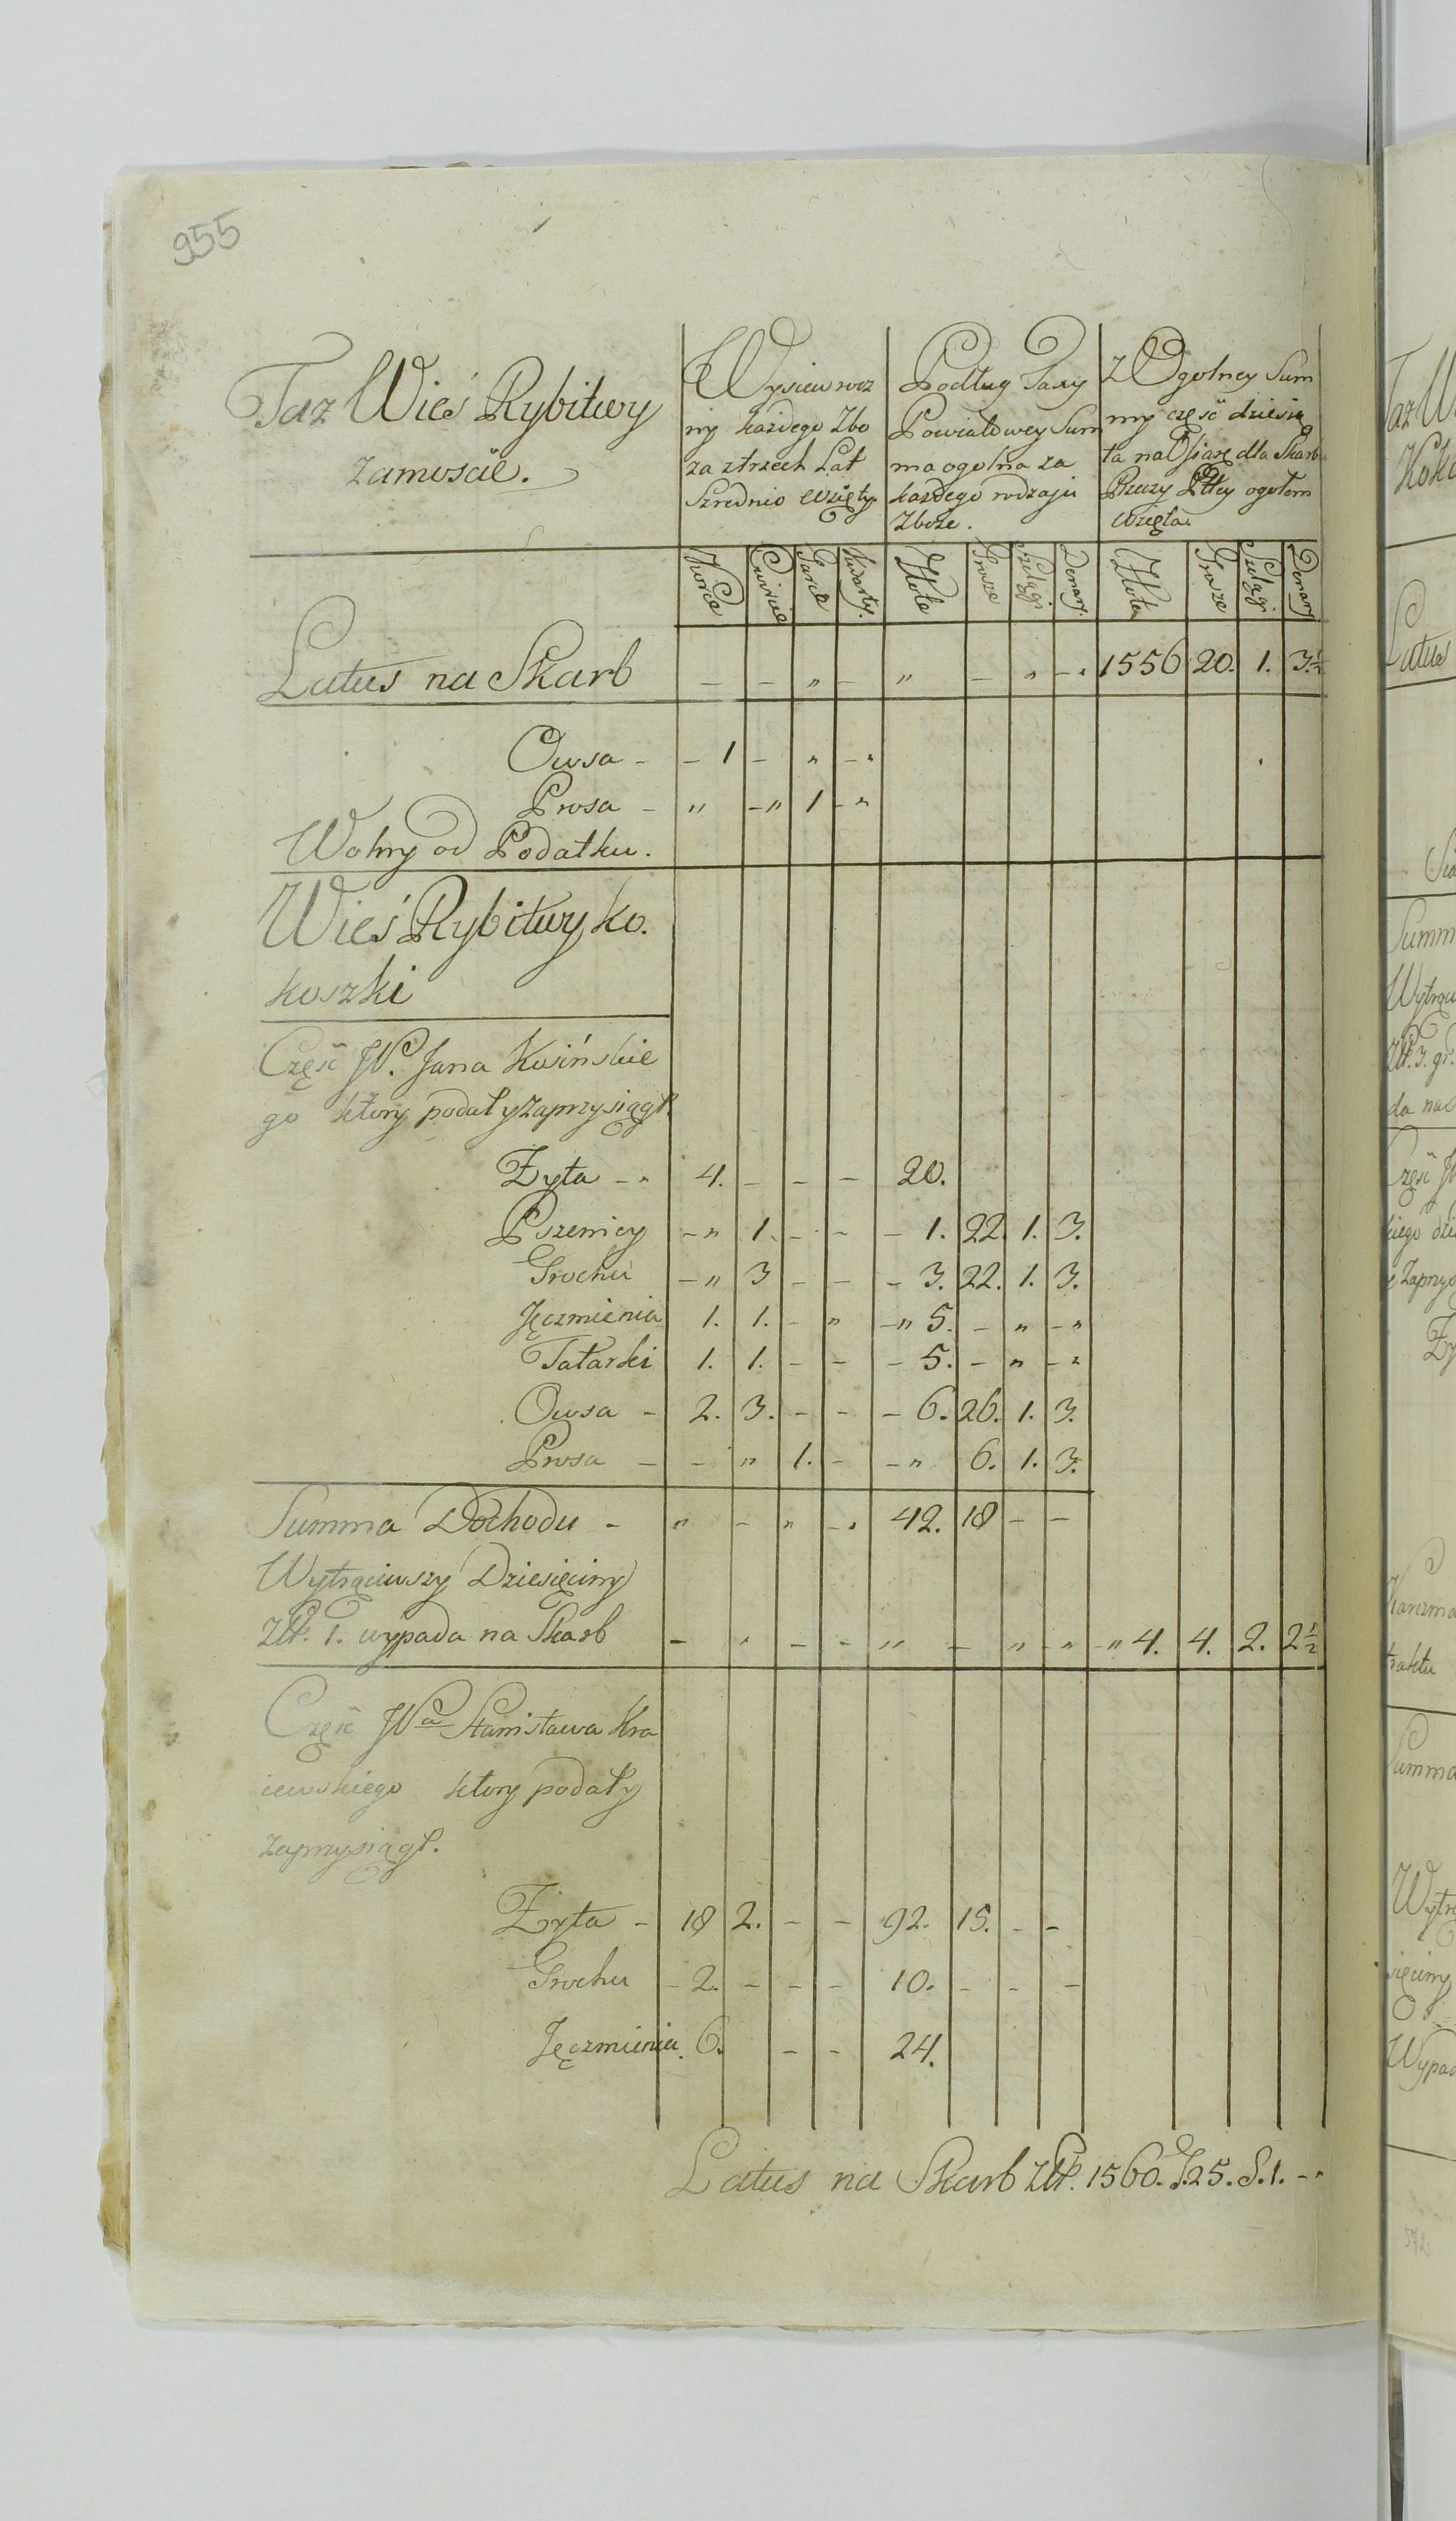 955
Taz Wieś Rybitwy
zamoście.
Wysiew rocz
ny każdego Zbo
za z trzech Lat
Szrednio wzięty
Podług Taxy
Powiatowey Sum
ma ogolna za
każdego rodzaju
Zboże.
Z Ogolney Sum
my część dziesią
ta na Ofiarę dla Skarb
Rzeczy Pltey ogołem
wzięta
Korce Cwircie Garce Kwarty. Złote Grosze Szelągi Denary. Złote Grosze Szelągi Denary
Latus na Skarb - - " - " - " - " 1556 20. 1. 3½
Owsa - - 1 - " - "
Prosa - " - " 1 - "
Wolny od Podatku.
Wieś Rybitwy, ko.
koszki
Część JP. Jana Kosińskie
go ktory podał y zaprzysiągł.
Żyta - " 4. - - - 20.
Pszenicy - " 1. - - - 1. 22. 1. 3.
Grochu - " 3 - - - 3. 22. 1. 3.
Jęczmienia 1. 1. - " - " 5. - " - "
Tatarki 1. 1. - - - 5. - " - "
Owsa - 2. 3. - - - 6. 26. 1. 3.
Prosa - - " 1. - - " 6. 1. 3.
Summa Dochodu - " - " - " 42. 18 - -
Wytrąciwszy Dziesięciny
Złt. 1. wypada na Skarb - " - - " - " - " - " 4. 4. 2. 2½
Część JPa Stanisława Kra
iewskiego ktory podał y
zaprzysiągł.
Żyta - 18 2. - - 92. 15. - -
Grochu - 2. - - - 10. - - -
Jęczmienia. 6. - - 24.
Latus na Skarb Złt. 1560. g. 25. S. 1. - "
Taz W
Koko
Latus
Summ
Wytrąc
Złt. 3. gr.
da na
Część JP
kiego dzi
y Zaprzys
Ży
Karczma
traktu
Summa
Wytrą
sięciny
Wypad